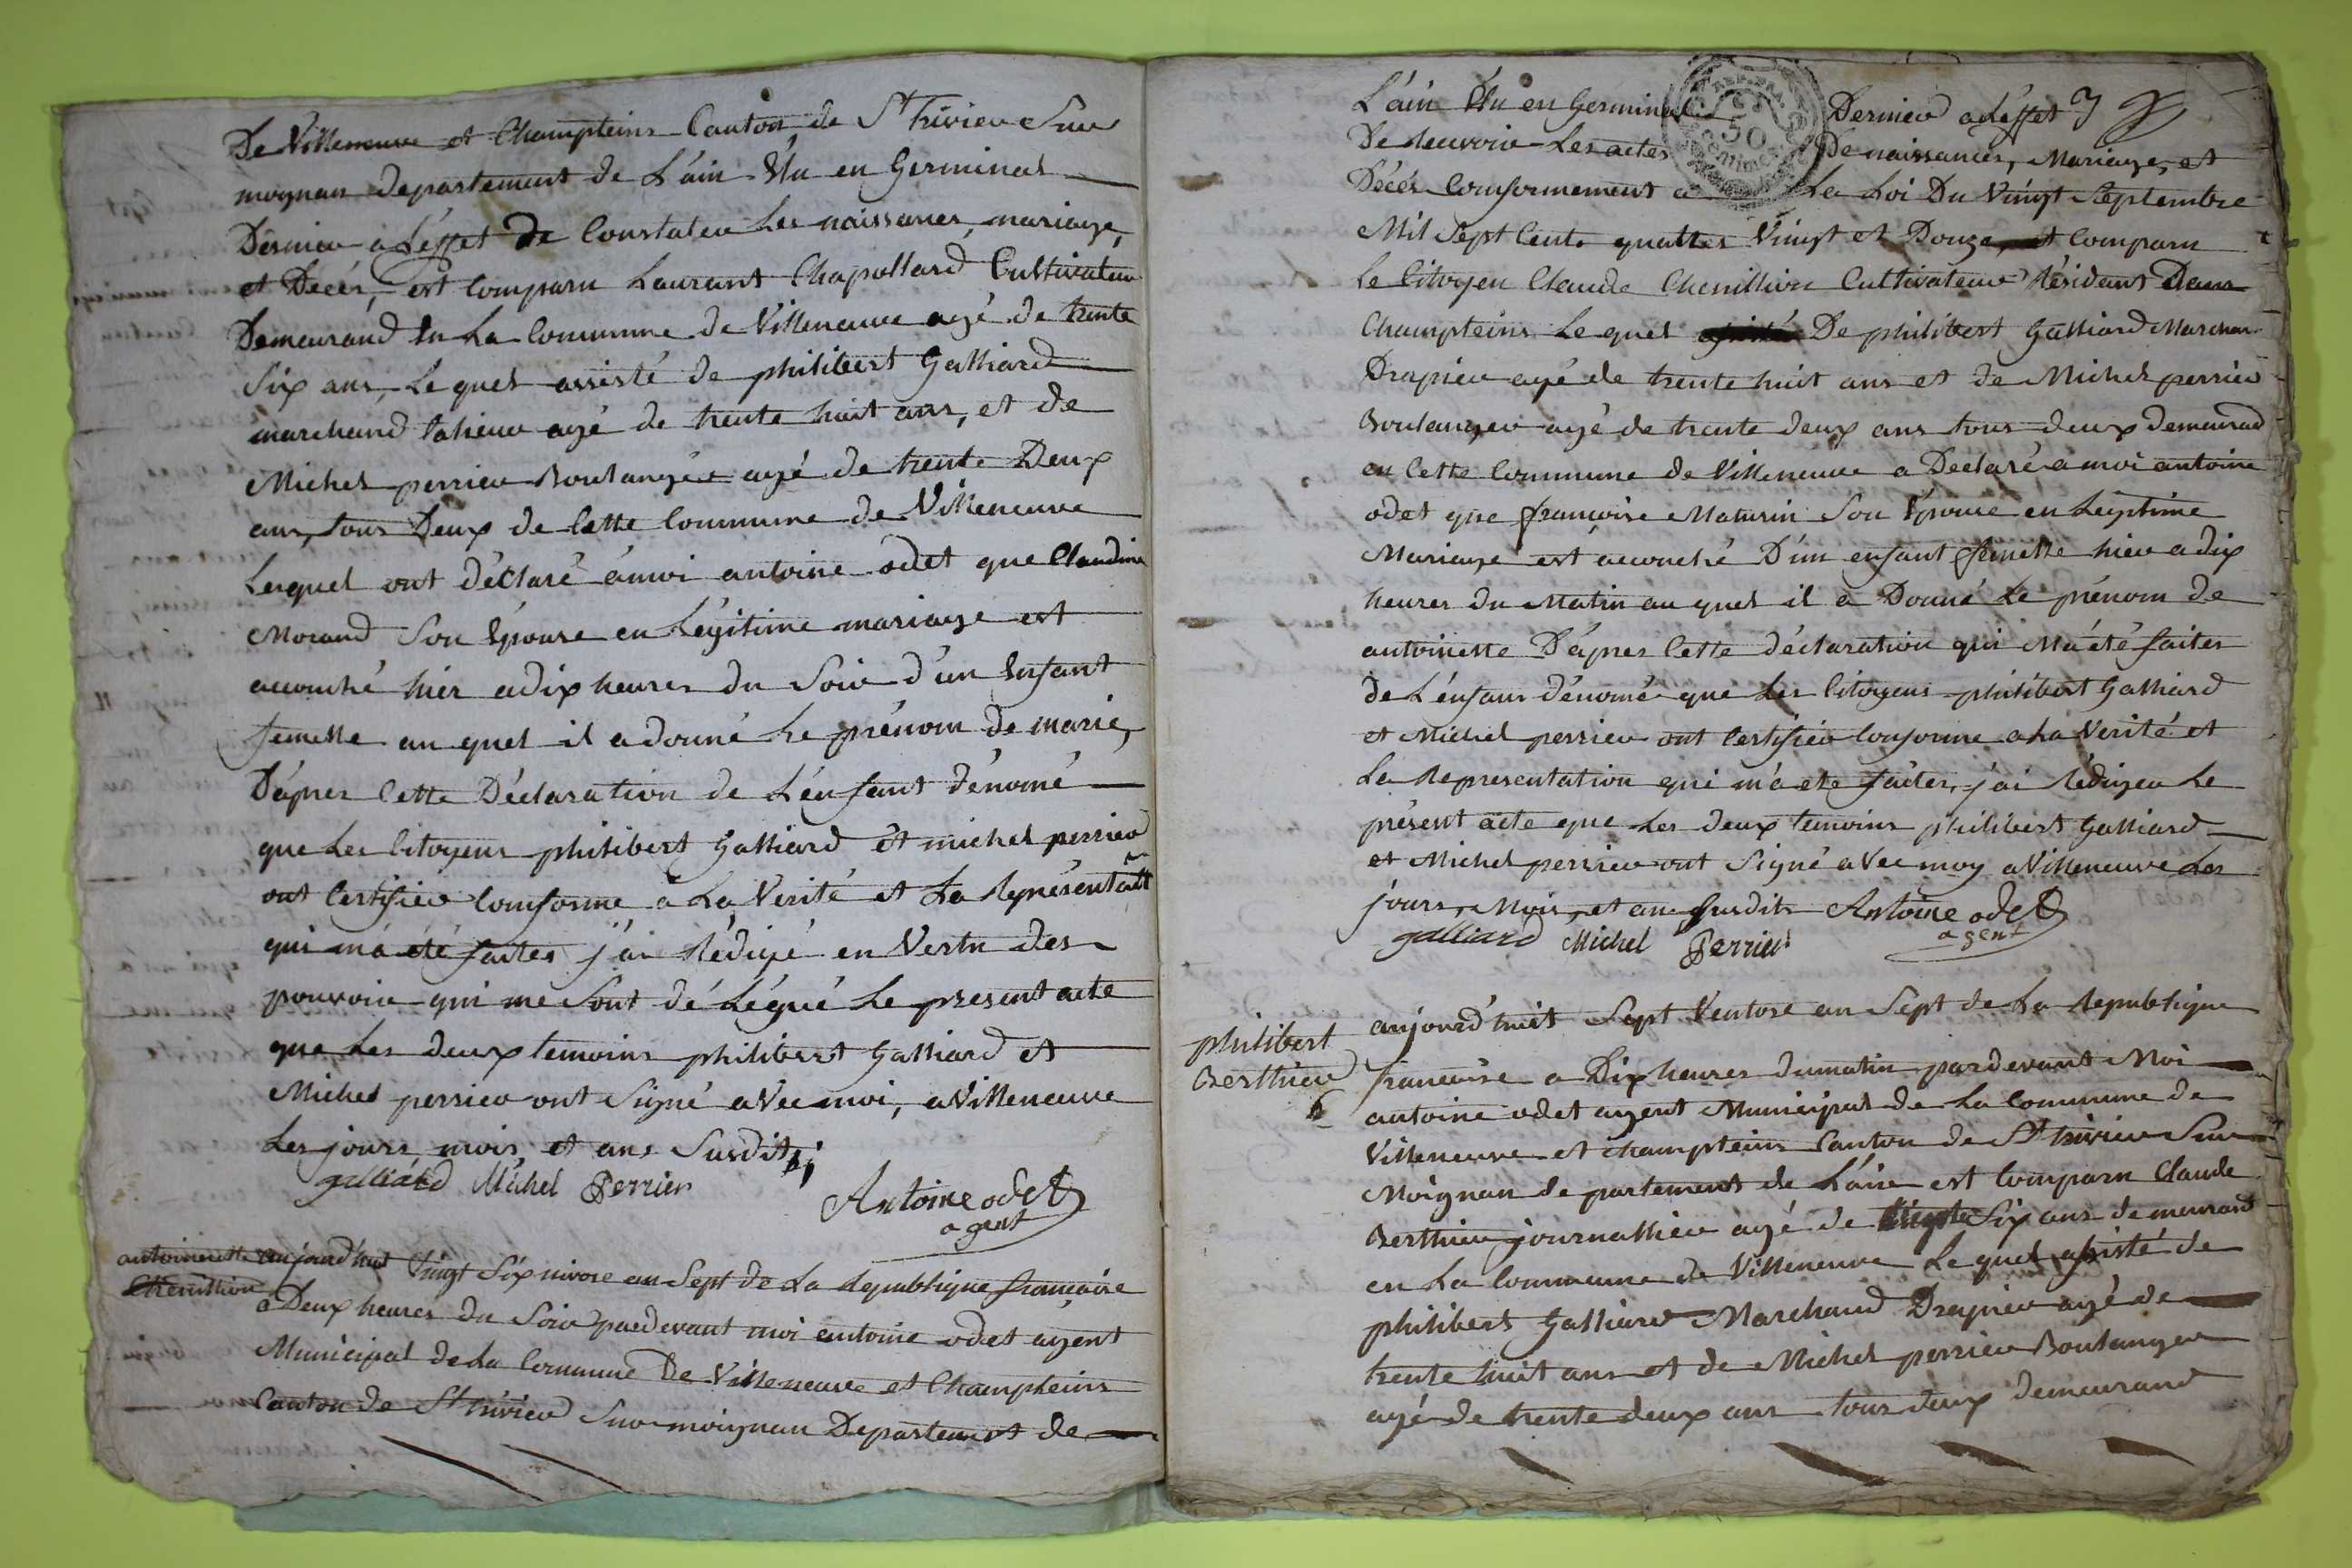 De Villeneuve et Champteins Canton de St trivier Sur
moignan departement de L'ain Elu en Germinal
Dernier a L'effet de Constater Les naissances, mariage,
et Decés, est Comparu Laurant Chapollard Cultivateur
Demeurand En La Commune de Villeneuve agé de trente
Six ans, Le quel assisté de philibert Galliard
marchand agé de trente huit ans, et de
Michel perrier Boulangér agé de trente Deux
ans, tous Deux de Cette Commune de Villeneuve
Lesquel ont déClaré a moi antoine odet que Claudine
Morand Son Epouse en Légitime mariage est
accouché hier a dix heures du Soir d'un Enfant
femelle au quel il a donné Le prénom de marie,
D'àpres Cette Déclaration de L'énfant dénomé
que Les Citoyens philibert Galliard et michel perrier
ont Certifier Conforme à La Verité et La Représentatt
qui m'a été faites j'ai Rédigé en Vertu des
pouvoir qui me Sont dé Légué Le present acte
que Les deux temoins philibert Galliard et
Michel perrier ont Signé aVec moi, a Villeneuve
Les jours, mois, et ans Susdits;
galliard Michel Perrier
Antoine odet
agent
antoinette
Chenillion
aujourd'hui Vingt Six nivose an Sept de La Republique francaise
a Deux heures du Soir pardevant moi antoine odet agent
Municipal de La Commune De Villeneuve et Champteins
Canton de St trivier Sur moignan Departement de
L'ain Elu en Germinal Dernier a L'effet 7
De Recevoir Les actes De naissances, Mariage, et
Décés Conformement a La Loi Du Vingt Septembre
Mil Sept Cents quattes Vingt et Douze, et Comparu
Le Citoyen Claude Chenillion Cultivateur Résidant Dans
Champteins Le quel De philibert Galliard Marchan
Drapier agé de trente huit ans et de Michel perrier
Boulanger agé de trente deux ans tous deux demeurand
en Cette Commune de Villeneuve a Declaré a moi antoine
odet que françoise Maturin Son Epouse en Legitime
Mariage est accouché D'un enfant femelle hier a dix
heures du Matin au quel il a Donné Le prénom de
antoinette D'ápres Cette déclaration qui M'a été faites
de L'énfans dénomé que Les Citoyens philibert Galliard
et Michel perrier ont Certifier Conforme a La Verité et
La Representation qui m'a ete faites, j'ai Rédiger Le
présent acte que Les deux temoins philibert Galliard
et Michel perrier ont Signé aVec moy a Villeneuve Les
jours, Mois, et an Susdits Antoine odet
agent
galliard Michel Perrier
philibert
Berthier
aujourd'huit Sept Ventose an Sept de La Republique
francaise a Dix heures du matin pardevant Moi
antoine odet agent Municipal de La Commune de
Villeneuve et champteins Canton de St trivier Sur
Moignan de partement de L'ain est Comparu Claude
Berthier journallier agé de Six ans demeurand
en La Commune de Villeneuve Le quel assisté de
philibert Galliard Marchand Drapier agé de
trente huit ans et de Michel perrier Boulanger
agé de trente deux ans tous deux demeurand